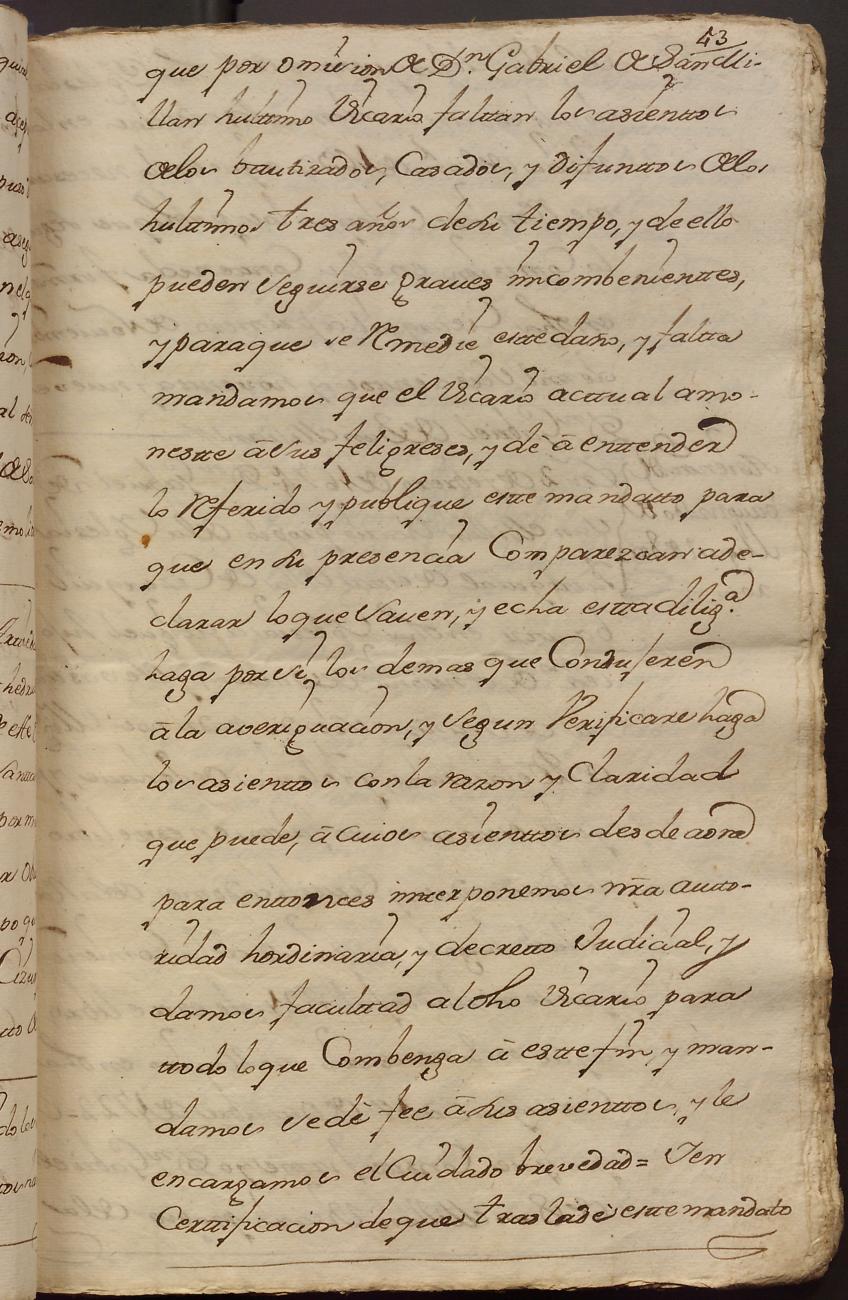 43
que por omision de Dn. Gabriel de Sanmi-
llan hultimo Vicario falttan los asienttos
delos bautizados, Casados, y Difunttos delos
hulttimos tres años de su tiempo, y de ello
pueden seguirse graves imcombenienttes,
y paraque se Remedie estte daño, y faltta
mandamos que el Vicario acttual amo-
nestte â sus feligreses, y dê â enttender
lo Referido y publique estte mandatto para
que en su presencia Comparezcan ade-
clarar loque saven, y echa esttadilig.a
haga por sî, los demas que Condugeren
âla averiguacion, y segun Verificare haga
los asienttos conla razon y Claridad
que puede, â cuios asienttos desde aora
para enttonces intterponemos nr̃a autto-
ridad hordinaria, y decretto Judicial, y
damos faculttad al dho Vicario para
ttodo loque Combenga â estte fin, y man-
damos sedê fee â sus asienttos, y le
encargamos el Cuidado brevedad = Y en
Certtificacion de que trasladê estte mandato